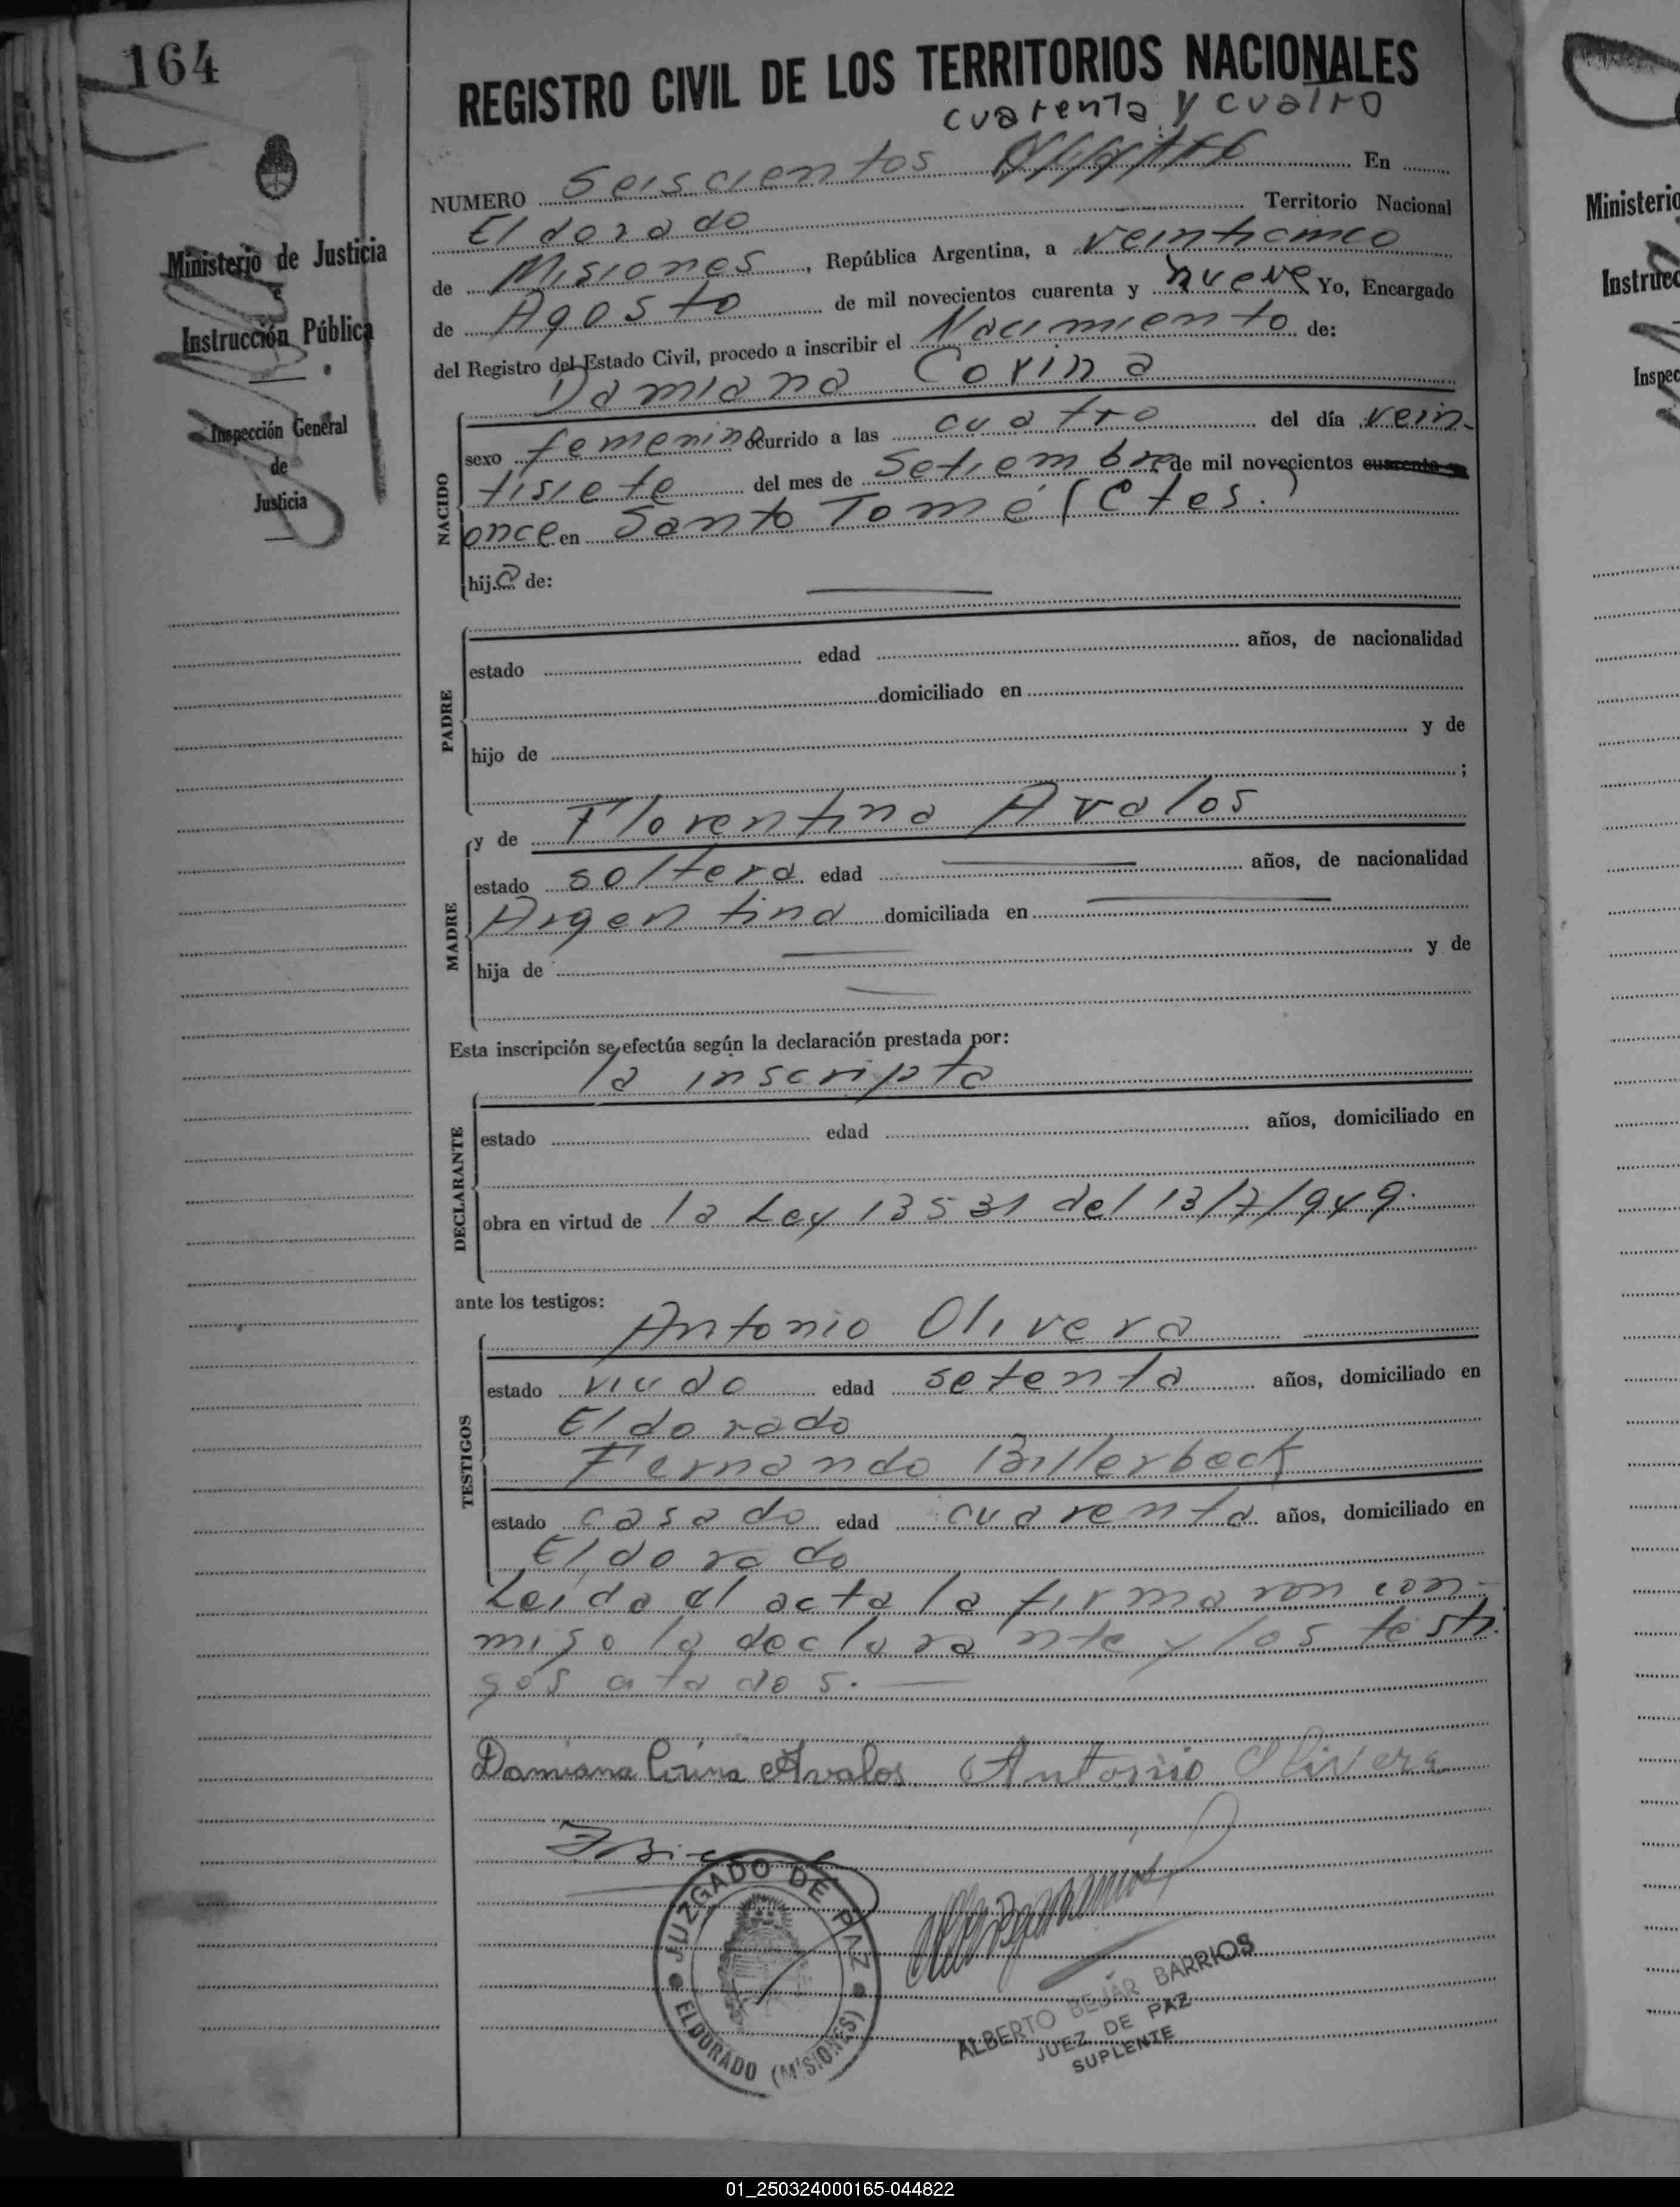 164
REGISTRO CIVIL DE LOS TERRITORIOS NACIONALES
cuarenta y cuatro
NUMERO Seiscientos En
Eldorado Territorio Nacional
de Misiones, República Argentina, a veinticinco
de Agosto de mil novecientos cuarenta y nueve Yo, Encargado
del Registro del Estado Civil, procedo a inscribir el Nacimiento de:
Damiana Corina
NACIDO
sexo femenino ocurrido a las cuatro del día vein-
tisiete del mes de Setiembre de mil novecientos cuarenta y
once en Santo Tomé (Ctes.)
hija de:
PADRE
estado edad años, de nacionalidad
domiciliado en
hijo de y de
;
MADRE
y de Florentina Avalos
estado soltera edad años, de nacionalidad
Argentina domiciliada en
hija de y de
Esta inscripción se efectúa según la declaración prestada por:
la inscripta
DECLARANTE
estado edad años, domiciliado en
obra en virtud de la Ley 13531 del 13/7/949.
ante los testigos:
Antonio Olivera
TESTIGOS
estado viudo edad setenta años, domiciliado en
Eldorado
Fernando Billerbeck
estado casado edad cuarenta años, domiciliado en
Eldorado
Leída el acta la firmaron con-
migo la declarante y los testi-
gos atados.
Damiana Corina Avalos Antonio Olivera
JUZGADO DE PAZ
ELDORADO (MISIONES)
ALBERTO BEJAR BARRIOS
JUEZ DE PAZ
SUPLENTE
Ministerio de Justicia
e
Instrucción Pública
Inspección General
de
Justicia
Ministerio
Instrucc
Inspec
01_250324000165-044822